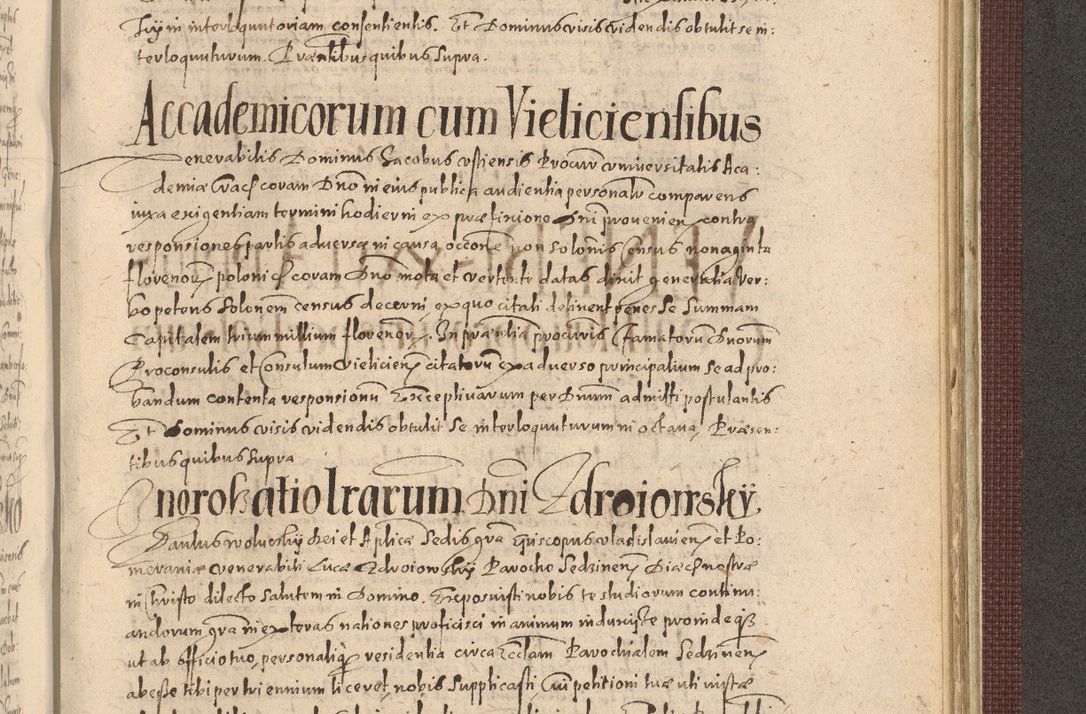 kÿ in interloquutoriam consentientis. Et Dominus visis videndis obtulit se in:
terloquuturum. Præsentibus quibus supra.
Accademicorum cum Vieliciensibus
Venerabilis Dominus Jacobus Ustiensis Procurr universitatis Aca:
demiæ Crac̃ coram Dno in eius publica audientia personalr comparens
iuxa exigentiam termini hodierni ex præfinione Dni provenien contra
responsiones partis adversæ in causa occone non solonis Census nonaginta
florenor polonic̃ coram Dno mota et vertente datas dixit generalia ver:
bo petens solonem census decerni ex quo citati detinent penes se summam
Capitalem trium millium florenor. In præntia procuris Famatorũ Dnorum
Proconsulis et Consulum Vielicien citatorũ ex adverso principalium se ad pro:
bandum contenta responsionũ Exceptivarum per Dnum admitti postulantis
Et Dominus visis videndis obtulit se interloquuturum in octava, Præsen:
tibus quibus supra
Inoroßatio lrarum Dni Zdroiowskÿ
Paulus Wolucskÿ Dei et Aplicæ Sedis gra Episcopus Vladislavien et Po:
meraniæ Venerabili Lucæ Zdroiowskÿ Parocho Sedzinen Diæc̃ nostræ
in Christo dilecto salutem in Domino. Exposuisti nobis te studiorum continu:
andorum gra in exteras nationes proficisci in animum induxiste proindeq̃ß
ut ab officio tuo, personaliq residentia circa Ecclam Parochialem Sedzinen
abeße tibi per triennium liceret, nobis supplicasti Cui petitioni tuæ uti iustæ